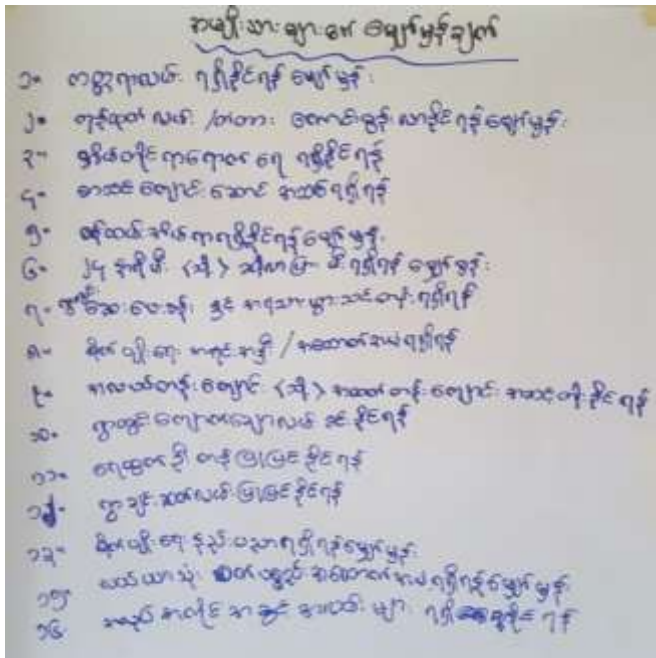 အမျိုးသားများ၏ မျှော်မှန်းချက်
၁။ ကတ္တရာလမ်း ရရှိနိုင်ရန် မျှော်မှန်း
၂။ ကုန်ထုတ် လမ်း /တံတား ကောင်းမွန် လာနိုင်ရန် မျှော်မှန်း
၃။ အိမ်တိုင်ရာရောက် ရေ ရရှိနိုင်ရန်
၄။ စာသင်ကျောင်းဆောင် အသစ်ရရှိရန်
၅။ ဝန်ထမ်းအိမ်ရာရရှိနိုင်ရန် မျှော်မှန်း
၆။ ၂၄ နာရီမီး (သို့) ဆိုလာပြား မီးရရှိရန် မျှော်မှန်း
၇။ ဆေးပေးခန်း နှင့် အရသားဖွားသင်တန်း ရရှိရန်
၈။ စိုက်ပျိုးရေး အရင်းအနှီး / အထောက်အပံ့ရရှိရန်
၉။ အလယ်တန်းကျောင်း (သို့) အထက်တန်းကျောင်း အဆင့်တိုးနိုင်ရန်
၁၀။ ရွာတွင်း ကျောက်ချောလမ်း ခင်းနိုင်ရန်
၁၁။ ရေထွက် ဦး တန် ပြုပြင်နိုင်ရန်
၁၂။ ရွာချင်းဆက်လမ်းပြုပြင်နိုင်ရန်
၁၃။ စိုက်ပျိုးရေး နည်းပညာရရှိရန်မျှော်မှန်း
၁၅။ လယ်ယာသုံး စက်ပစ္စည်း အထောက်အပံ့ရရှိရန်မျှော်မှန်း
၁၆။ အလုပ် အကိုင် အခွင့် အလမ်း များ ရရှိနိုင်ရန်